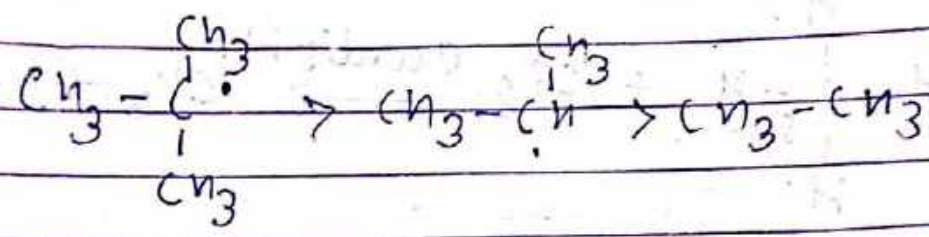 CH3 CH3
CH3 - C • > CH3 - CH > CH3 - CH3
CH3 •